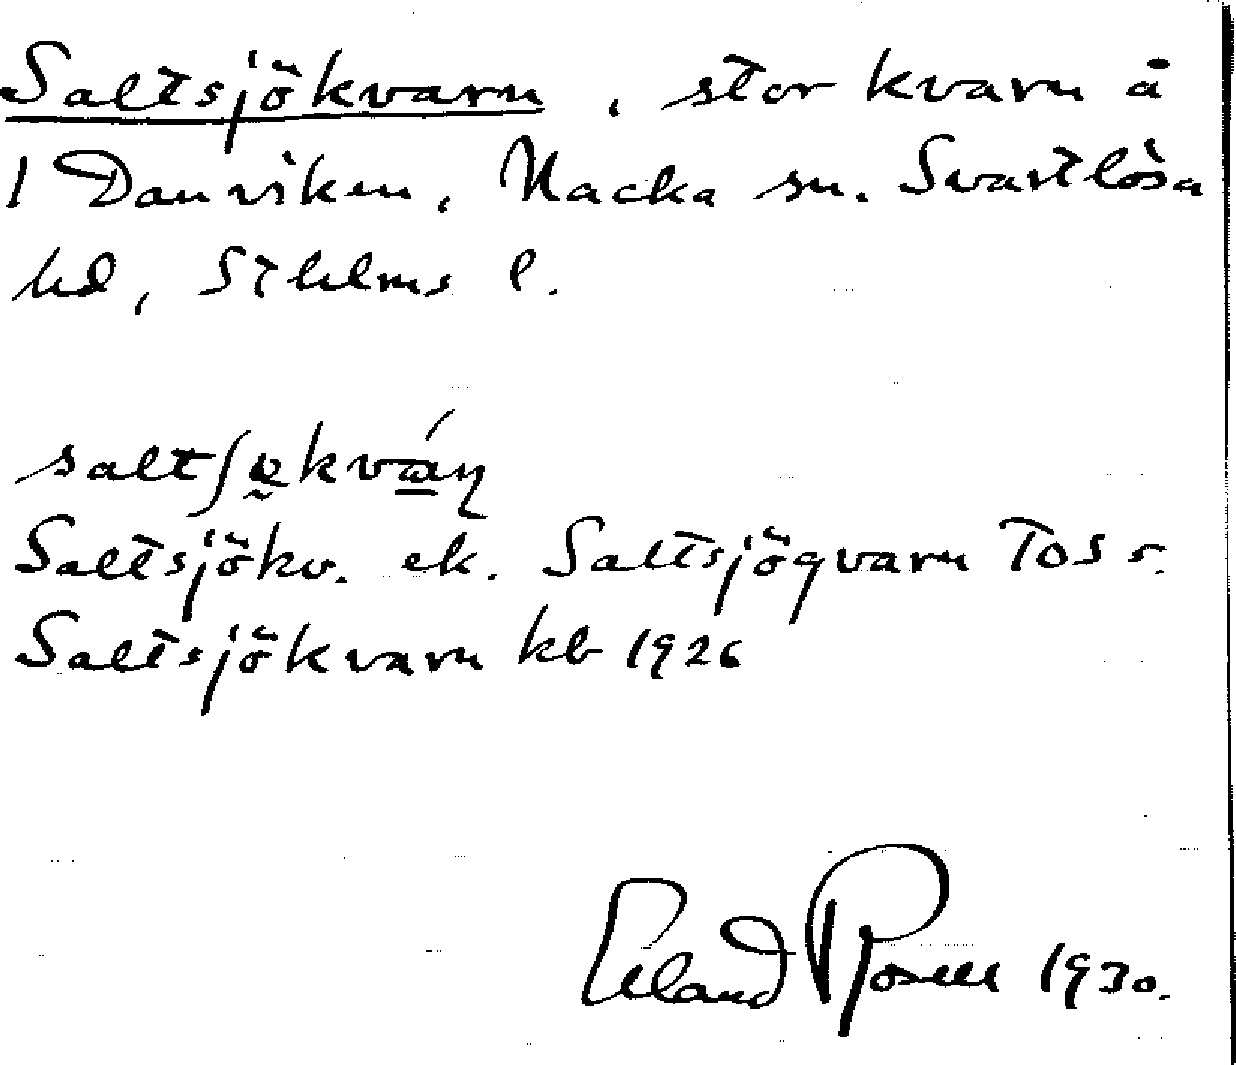 Saltsjökvarn, stor kvarn å
1 Danviken, Nacka sn. Svartlösa
hd, Sthlms l.
saltʃøkváɳ
Saltsjökv. ek. Saltsjöqvarn TOS r.
Saltsjökvarn kb 1926
Erland Rosell 1930.